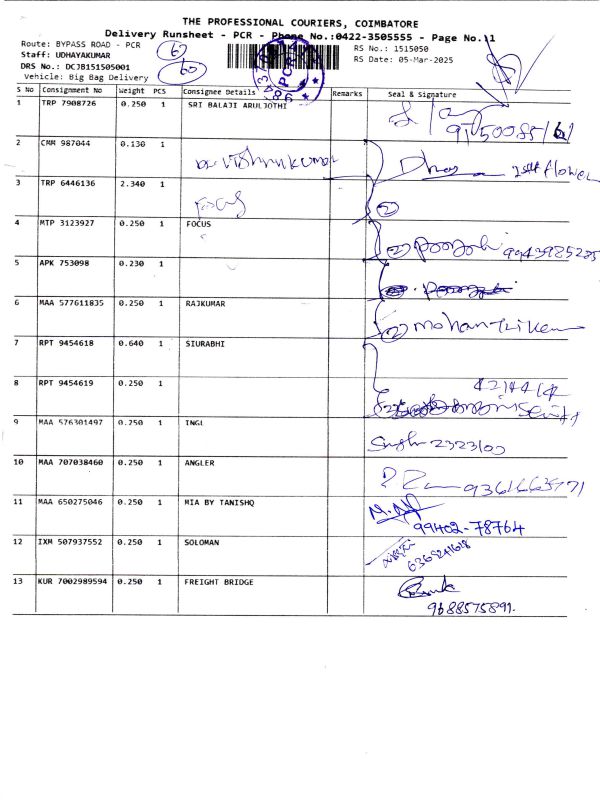 THE PROFESSIONAL COURIERS, COIMBATORE
Delivery Runsheet - PCR - Phone No.:0422-3505555 - Page No.:1
Route: BYPASS ROAD - PCR
Staff: UDHAYAKUMAR
DRS No.: DCJB151505001
Vehicle: Big Bag Delivery
RS No.: 1515050
RS Date: 05-Mar-2025
60
PCR
S No Consignment No Weight PCS Consignee Details Remarks Seal & Signature
1 TRP 7908726 0.250 1 SRI BALAJI ARULJOTHI
2 CMM 987044 0.130 1 Dr. Vishnukumar
3 TRP 6446136 2.340 1 Focus
②
4 MTP 3123927 0.250 1 FOCUS ② 9943985285
5 APK 753098 0.230 1
6 MAA 577611835 0.250 1 RAJKUMAR ② mohan
7 RPT 9454618 0.640 1 SIURABHI
8 RPT 9454619 0.250 1
9 MAA 576301497 0.250 1 INGL
10 MAA 707038460 0.250 1 ANGLER
11 MAA 650275046 0.250 1 MIA BY TANISHQ
99402-78764
12 IXM 507937552 0.250 1 SOLOMAN
13 KUR 7002989594 0.250 1 FREIGHT BRIDGE
9688575891.